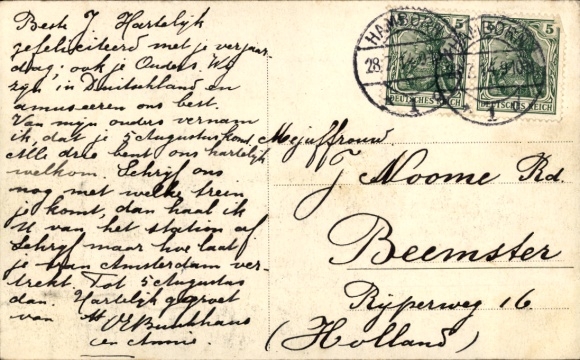 Beste J Hartelijk
gefeliciteerd met je verjaar-
dag; ook je Ouders. Wij
zijn in Duitschland en
amuseeren ons best.
Van mijn ouders vernam
ik, dat je 5 Augustus komt.
Alle drie bent ons hartelijk
welkom. Schrijf ons
nog met welke trein
je komt, dan haal ik
U van het station af
Schrijf maar hoe laat
je van Amsterdam ver-
trekt. Tot 5 Augustus
dan. Hartelijk gegroet
van
en Annie.
HAMBORN
28
5
DEUTSCHES REICH
HAMBORN
5
DEUTSCHES REICH
Mejuffrouw
J Noome Rd.
Beemster
Rijperweg 16
(Holland)